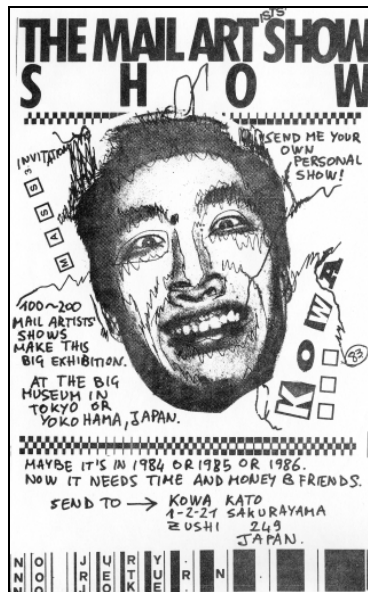 THE MAIL ARTISTS' SHOW
SHOW
INVITATION
MASS
SEND ME YOUR
OWN
PERSONAL
SHOW!
100~200
MAIL ARTISTS'
SHOWS
MAKE THIS
BIG EXHIBITION.
AT THE BIG
MUSEUM IN
TOKYO OR
YOKOHAMA, JAPAN.
KOWA
83
MAYBE IT'S IN 1984 OR 1985 OR 1986.
NOW IT NEEDS TIME AND MONEY & FRIENDS.
SEND TO → KOWA KATO
1-2-21 SAKURAYAMA
ZUSHI 249
JAPAN.